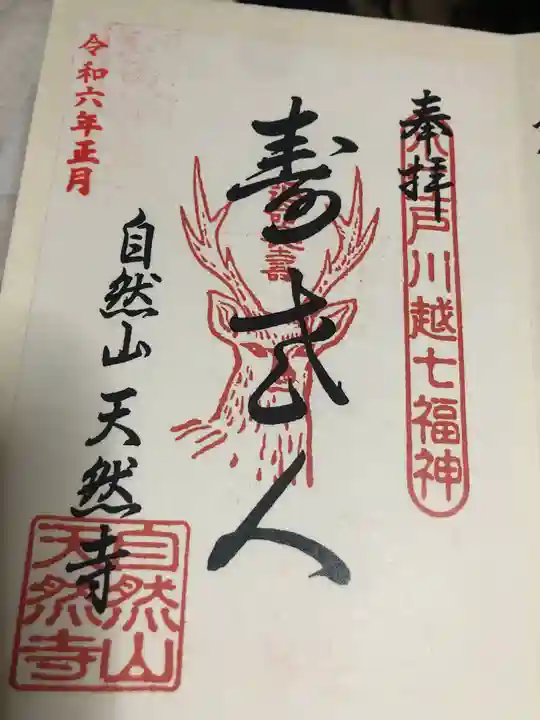 奉拝
小江戸川越七福神
寿老人
自然山 天然寺
自然山
天然寺
令和六年正月